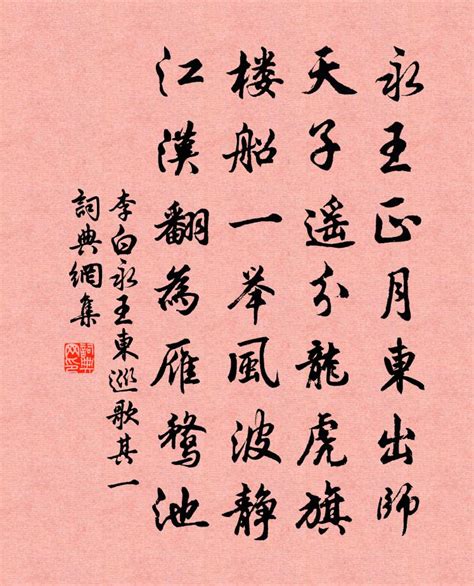 永王正月東出師
天子遥分龍虎旗
楼船一举風波静
江漢翻為雁鶩池
李白永王東巡歌其一
詞典網集
詞典网印